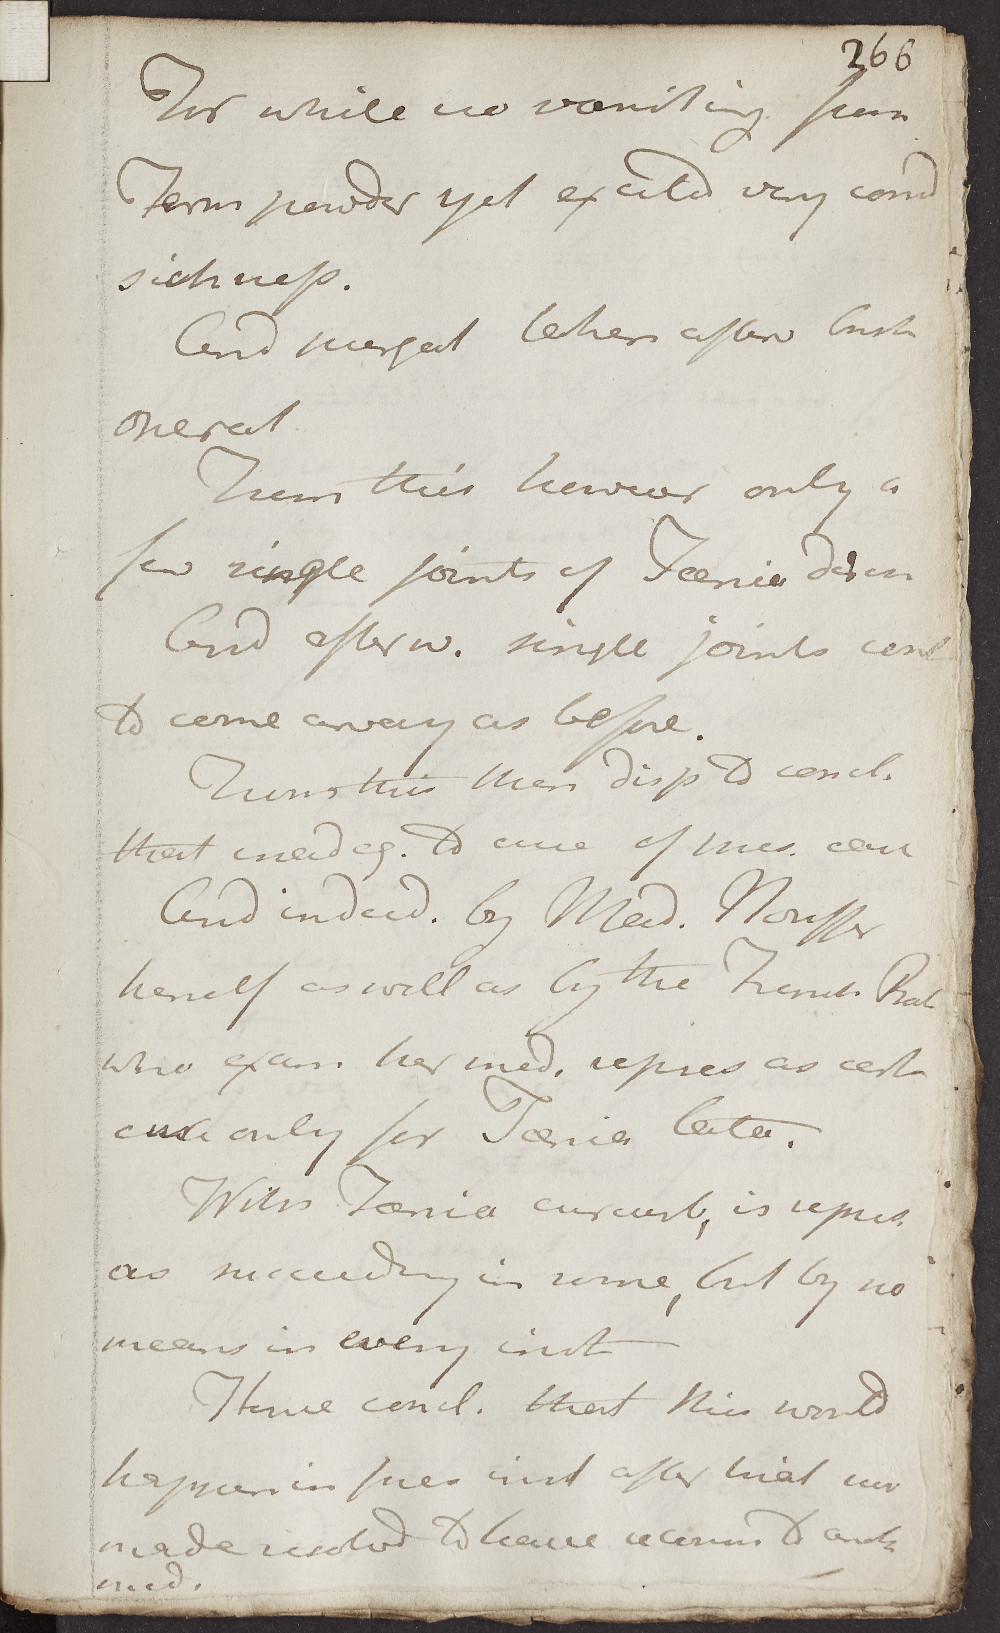 266
For while no vomiting from
Fern powder yet excited very cons
sickness.
And purgat taken afterw brisk
operat
From this however only a
few single joints of Taenia down
And afterw. single joints cont
to come away as before.
From this then disp to concl.
that inadeq. to cure of pres. case
And indeed. by Mad. Nouffer
herself as well as by the French Pract
who exam her med. repres as cert
cure only for Taenia lata.
With Taenia cucurb, is repres
as succeeding in some, but by no
means in every inst
Hence concl. that this would
happen in pres inst after trial
made resolvd to have recours to anoth
med.